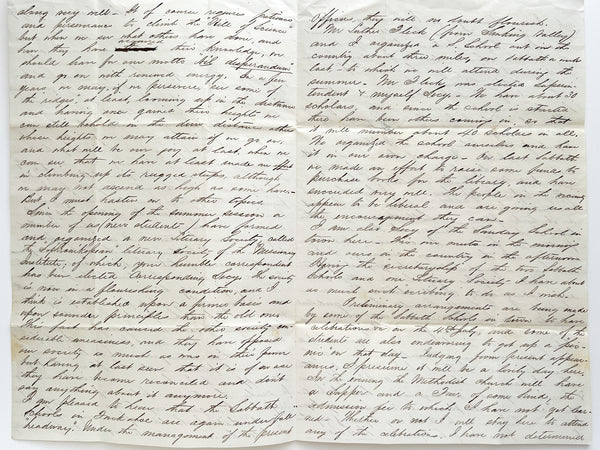 along very well - It of course requires patience
and perseverance to climb the Hill of Science
but when we see what others have done and
how they have acquired their knowledge, we
should have for our motto "Nil desperandum"
and go on with renewed energy. In a few
years, we may, if we persevere, see some of
the ridges, at least, looming up in the distance
and having once gained their heights we
can still behold in the dim distance other
whose heights we may attain if we go on,
and what will be our joy at last when we
can see that we have at least made an effort
in climbing up its rugged steeps although
we may not ascend as high as some have -
But I must hasten on to other topics
Since the opening of the summer session a
number of us, new students, have formed
and organized a new Literary Society called
the Literary Society of the
Institute, of which your humble correspondent
has been elected Corresponding Secy. The society
is now in a flourishing condition, and I
think is established upon a firmer basis and
upon sounder principles than the old ones
This fact has caused the other society con-
siderable uneasiness, and they have opposed
our society as much as was in their power
but having at last seen that it is of no use
they have become reconciled and don't
say anything about it anymore.
I am pleased to hear that the Sabbath
Schools in are again under full
headway. Under the management of the present
officers they will no doubt flourish.
Mr Luther Fleck (from Sinking Valley)
and I organized a S. School out in the
country about three miles, on Sabbath a week
last - to which we will attend during the
summer - Mr Fleck was elected Superin-
tendent & myself Secy - We have about 30
scholars, and since the school was started
there have been others coming in, so that
it will number about 40 scholars in all.
We organized the school ourselves and have
it in our own charge - On last Sabbath
we made an effort to raise some funds to
purchase books for the library and have
succeeded very well. The people in the country
appear to be liberal and are giving us all
the encouragement they can -
I am also Secy of the Sunday School in
town here - This one meets in the morning
and ours in the country in the afternoon
Having the secretaryship of the two Sabbath
Schools and one Literary Society - I have about
as much such writing to do as I wish.
Preliminary arrangements are being made
by some of the Sabbath Schools in town to have
celebrations &c on the 4th July, and some of the
students are also endeavoring to get up a pic-
nic on that day. Judging from present appear-
ances, I presume it will be a lively day here
In the evening the Methodist church will have
a Supper and a Fair of some kind, the
admission fee to which I have not yet lear-
ned. Whether or not I will stay here to attend
any of the celebrations, I have not determined